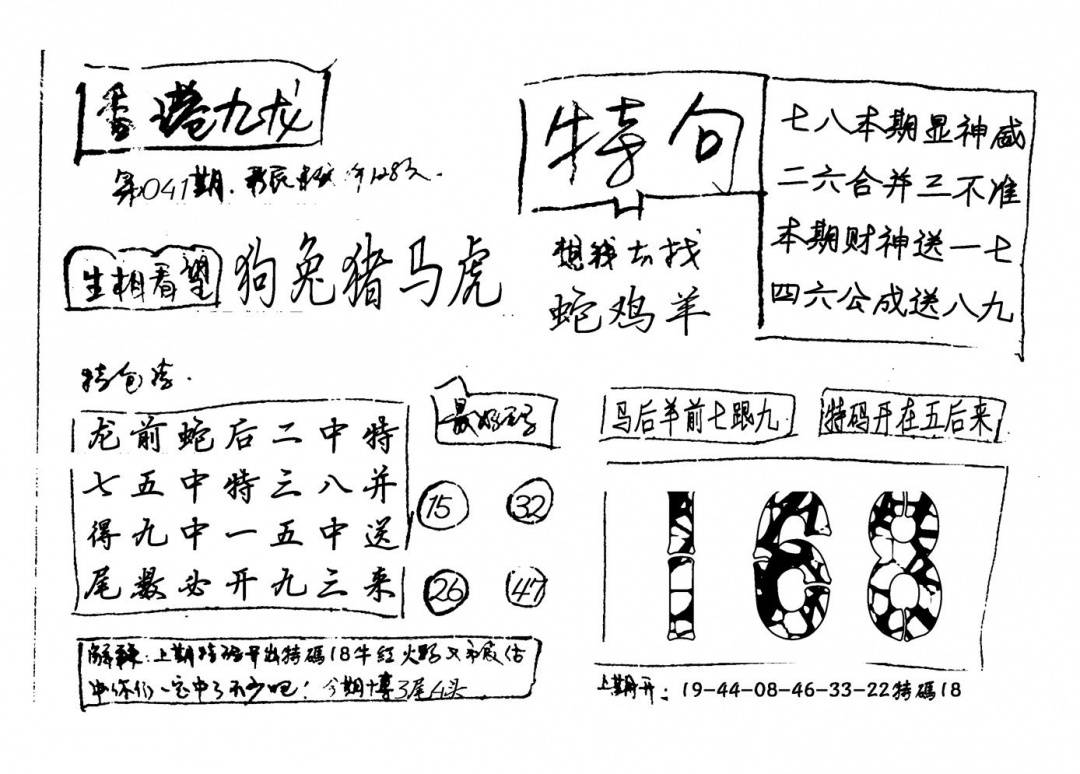 香港九龙
第041期.
生相看望
狗兔猪马虎
特句
想钱去找
蛇鸡羊
七八本期显神威
二六合并三不准
本期财神送一七
四六公成送八九
特包
龙前蛇后二中特
七五中特三八并
得九中一五中送
尾数必开九三来
最好
15 32
26 47
马后羊前七跟九
特码开在五后来
168
解释:上期特码开出特碼18牛红火
中你们一定中了不少吧! 今期博3尾4头
上期开:19-44-08-46-33-22特碼18